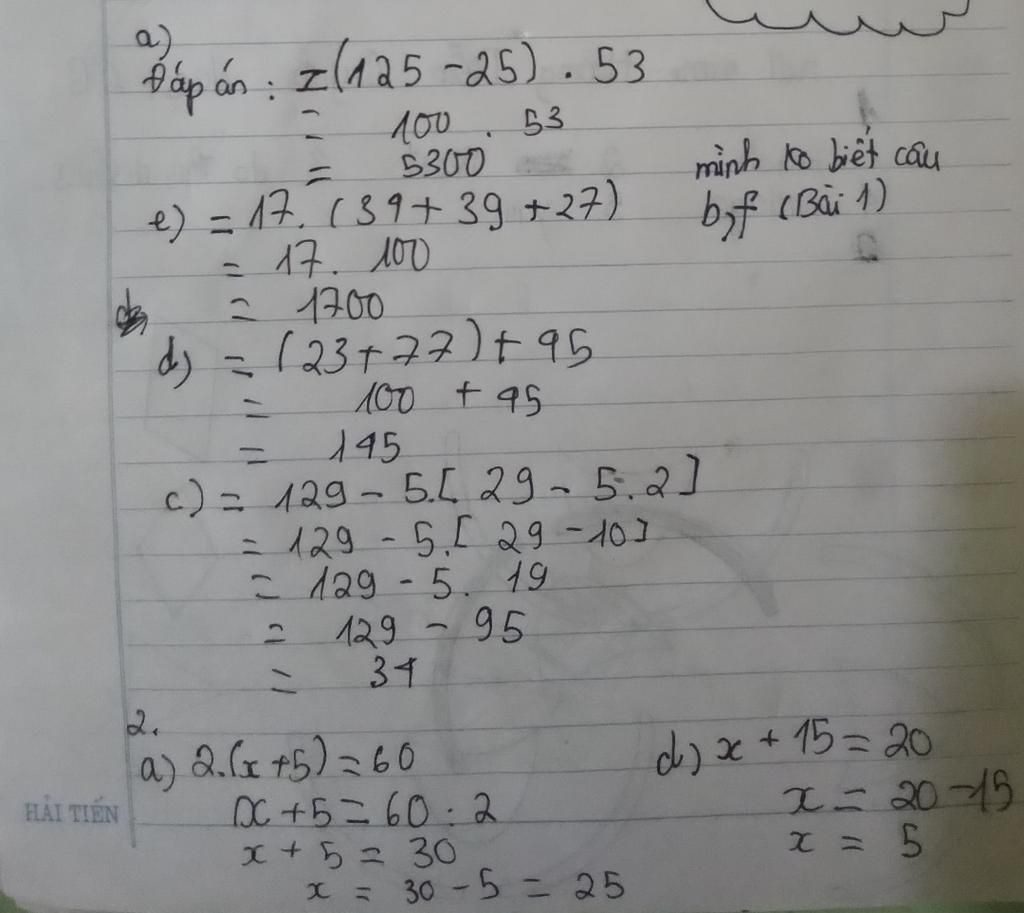 a)
Đáp án : = (125 - 25) . 53
= 100 . 53
= 5300
mình ko biết câu
b,f (Bài 1)
e) = 17. (34 + 39 + 27)
= 17. 100
= 1700
d) = (23 + 77) + 45
= 100 + 45
= 145
c) = 129 - 5.[ 29 - 5.2]
= 129 - 5.[ 29 - 10]
= 129 - 5. 19
= 129 - 95
= 34
2.
a) 2.(x+5) = 60
x + 5 = 60 : 2
x + 5 = 30
x = 30 - 5 = 25
d) x + 15 = 20
x = 20 - 15
x = 5
HẢI TIẾN